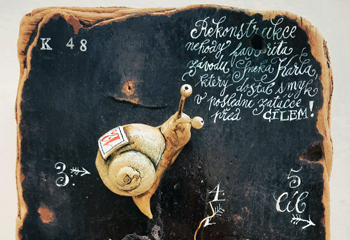 K 48
Rekonstrukce
nehody favorita
závodu Šneka Karla,
který dostal smyk
v poslední zatáčce
před CÍLEM!
3.
4.
5
CÍL